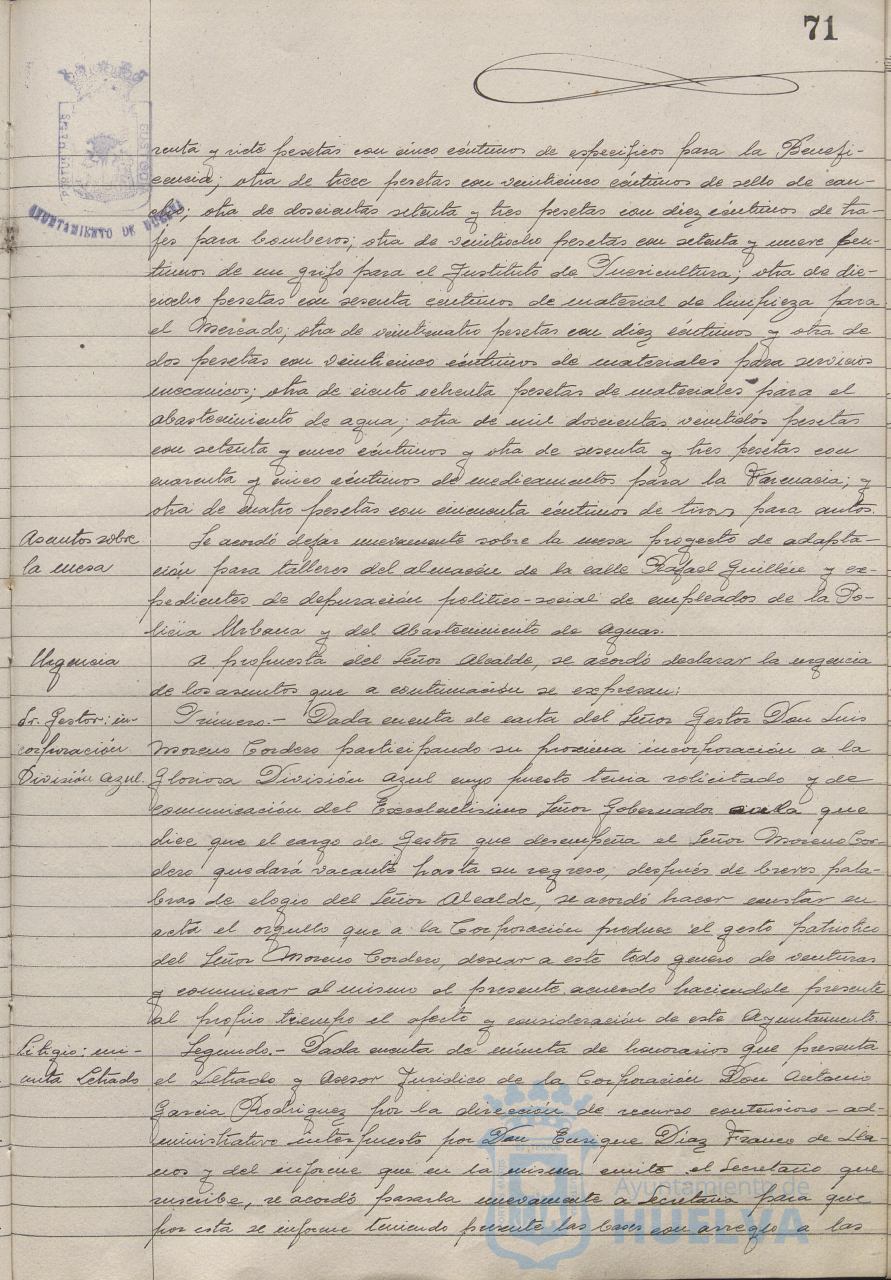 71
AYUNTAMIENTO DE HUELVA
renta y siete pesetas con cinco céntimos de especificos para la Benefi-
cencia; otra de trece pesetas con veinticinco céntimos de sello de cau-
cho; otra de doscientas setenta y tres pesetas con diez céntimos de tra-
jes para bomberos; otra de veintiocho pesetas con setenta y nueve cen-
timos de un grifo para el Instituto de Puericultura; otra de die-
ciocho pesetas con sesenta centimos de material de limpieza para
el Mercado; otra de veinticuatro pesetas con diez céntimos y otra de
dos pesetas con veinticinco céntimos de materiales para servicios
mecanicos; otra de ciento ochenta pesetas de materiales para el
abastecimiento de agua; otra de mil doscientas veintidós pesetas
con setenta y cinco céntimos y otra de sesenta y tres pesetas con
cuarenta y cinco céntimos de medicamentos para la Farmacia; y
otra de cuatro pesetas con cincuenta céntimos de tiros para autos.
Asuntos sobre
la mesa
Se acordó dejar nuevamente sobre la mesa proyecto de adapta-
ción para talleres del almacén de la calle Rafael Guillén y ex-
pedientes de depuración politico-social de empleados de la Po-
licia Urbana y del Abastecimiento de Aguas.
Urgencia
A propuesta del Señor Alcalde, se acordó declarar la urgencia
de los asuntos que a continuación se expresan:
Sr. Gestor: in-
corporación
División Azul.
Primero.- Dada cuenta de carta del Señor Gestor Don Luis
Moreno Cordero participando su proxima incorporación a la
Gloriosa División Azul cuyo puesto tenia solicitado y de
comunicación del Excelentisimo Señor Gobernador en la que
dice que el cargo de Gestor que desempeña el Señor Moreno Cor-
dero quedará vacante hasta su regreso, después de breves pala-
bras de elogio del Señor Alcalde, se acordó hacer constar en
acta el orgullo que a la Corporación produce el gesto patriotico
del Señor Moreno Cordero, desear a este todo genero de venturas
y comunicar al mismo el presente acuerdo haciendole presente
al propio tiempo el afecto y consideración de este Ayuntamiento.
Litigio: mi-
nuta Letrado
Segundo.- Dada cuenta de minuta de honorarios que presenta
el Letrado y Asesor Juridico de la Corporación Don Antonio
Garcia Rodriguez por la dirección de recurso contencioso-ad-
ministrativo interpuesto por Don Enrique Diaz Franco de Lla-
nos y del informe que en la misma emite el Secretario que
suscribe, se acordó pasarla nuevamente a Secretaria para que
por esta se informe teniendo presente las bases con arreglo a las
Ayuntamiento de
HUELVA